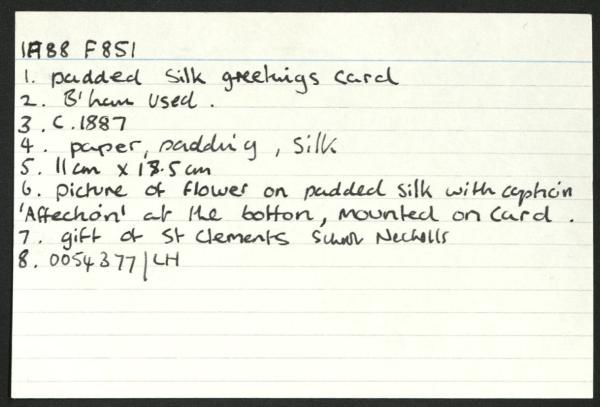 1988 F851
1. padded silk greetings card
2. B'ham used.
3. C.1887
4. paper, padding, silk
5. 11cm x 18.5cm
6. picture of flower on padded silk with caption
'Affection' at the bottom, mounted on card.
7. gift of St Clements School Nechells
8. 0054377/LH